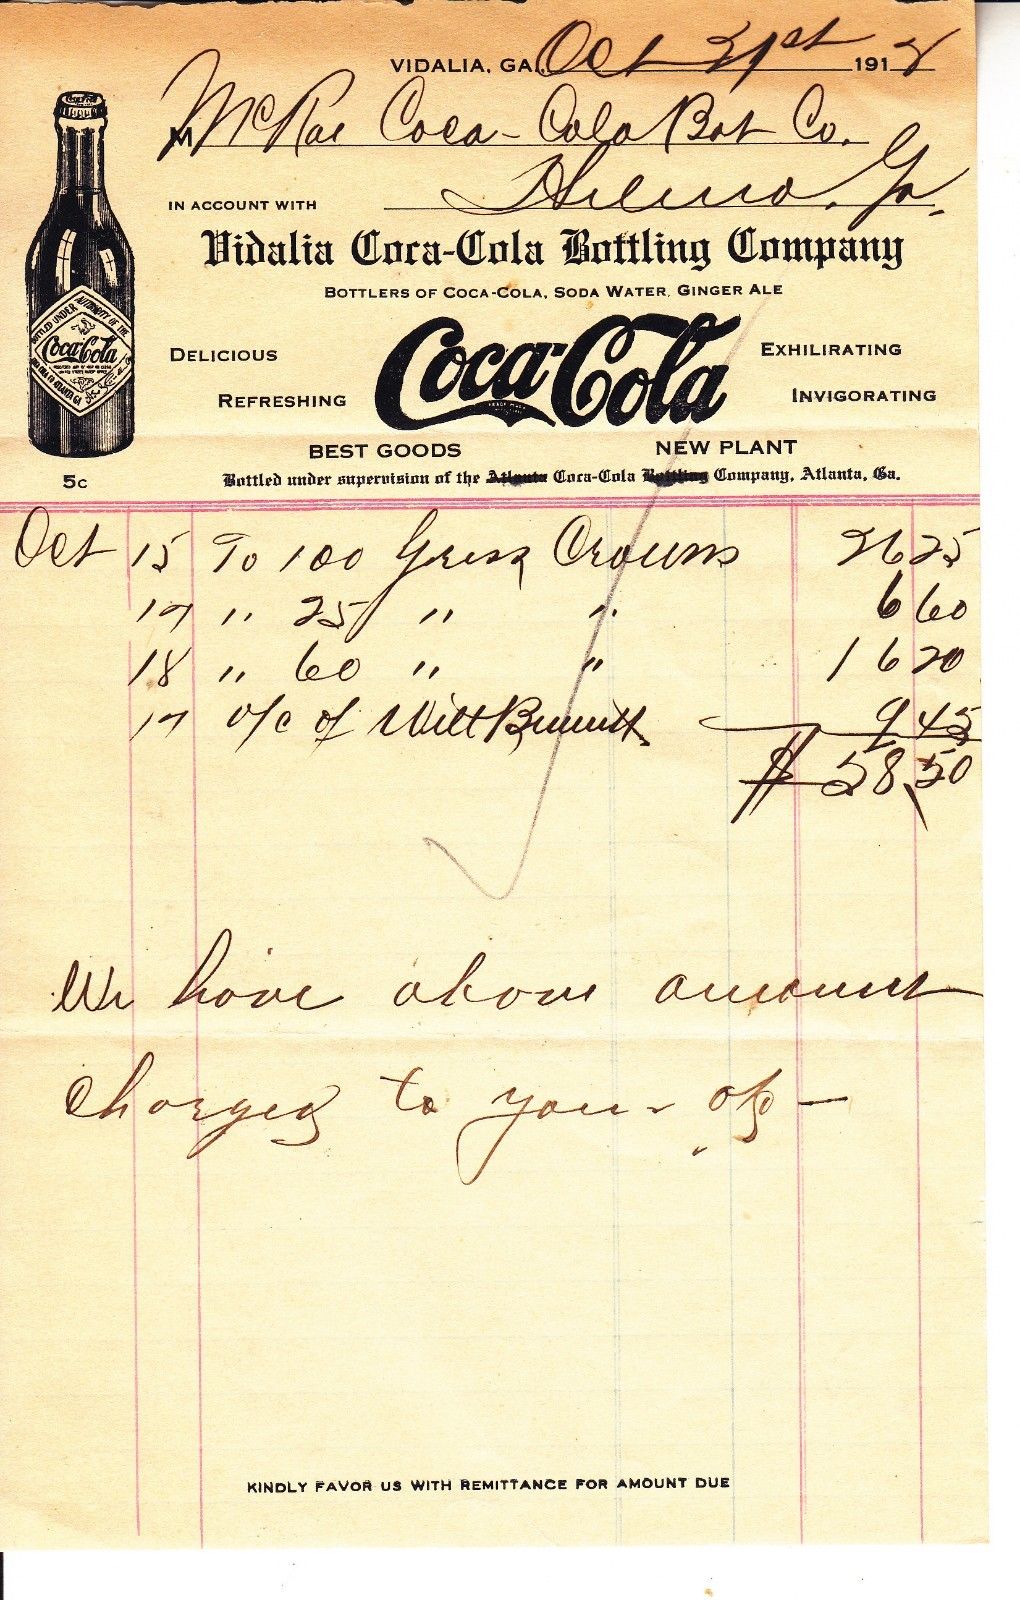 VIDALIA, GA., Oct 21st 191
M McRae Coca-Cola Bot Co.
Helena, Ga.
IN ACCOUNT WITH
Vidalia Coca-Cola Bottling Company
BOTTLERS OF COCA-COLA, SODA WATER, GINGER ALE
DELICIOUS
REFRESHING
Coca-Cola
EXHILIRATING
INVIGORATING
BEST GOODS
NEW PLANT
BOTTLED UNDER AUTHORITY OF THE
Coca-Cola
5c
Bottled under supervision of the Atlanta Coca-Cola Bottling Company, Atlanta, Ga.
Oct 15 To 100 Gross Crowns 26 25
17 " 25 " " 6 60
18 " 60 " " 16 20
17 o/c of Will 9 45
$ 58.50
We have above amount
charged to you -
KINDLY FAVOR US WITH REMITTANCE FOR AMOUNT DUE